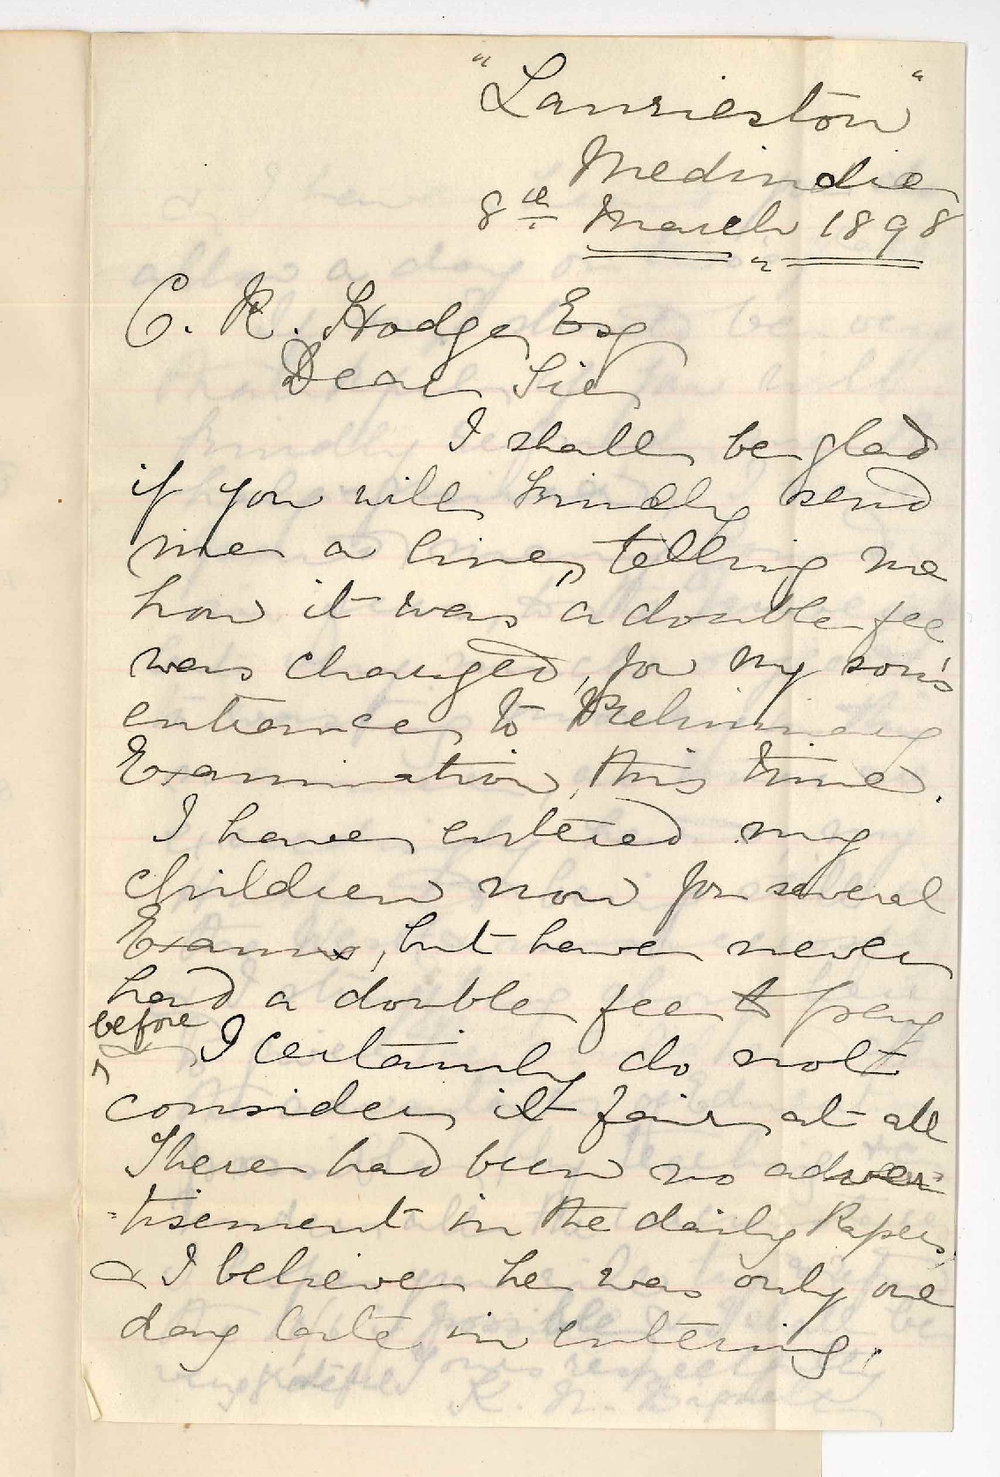 "Laurieston"
Medindie
8th March 1898
C. R. Hodge Esq
Dear Sir
I shall be glad
if you will kindly send
me a line, telling me
how it was a double fee
was charged, for my son's
entrance to Preliminary
Examination, this time.
I have entered my
children now for several
Exams, but have never
had a double fee to pay
before
I certainly do not
consider it fair at all
There had been no adver-
=tisement in the daily Papers,
& I believe he was only one
day late in entering.